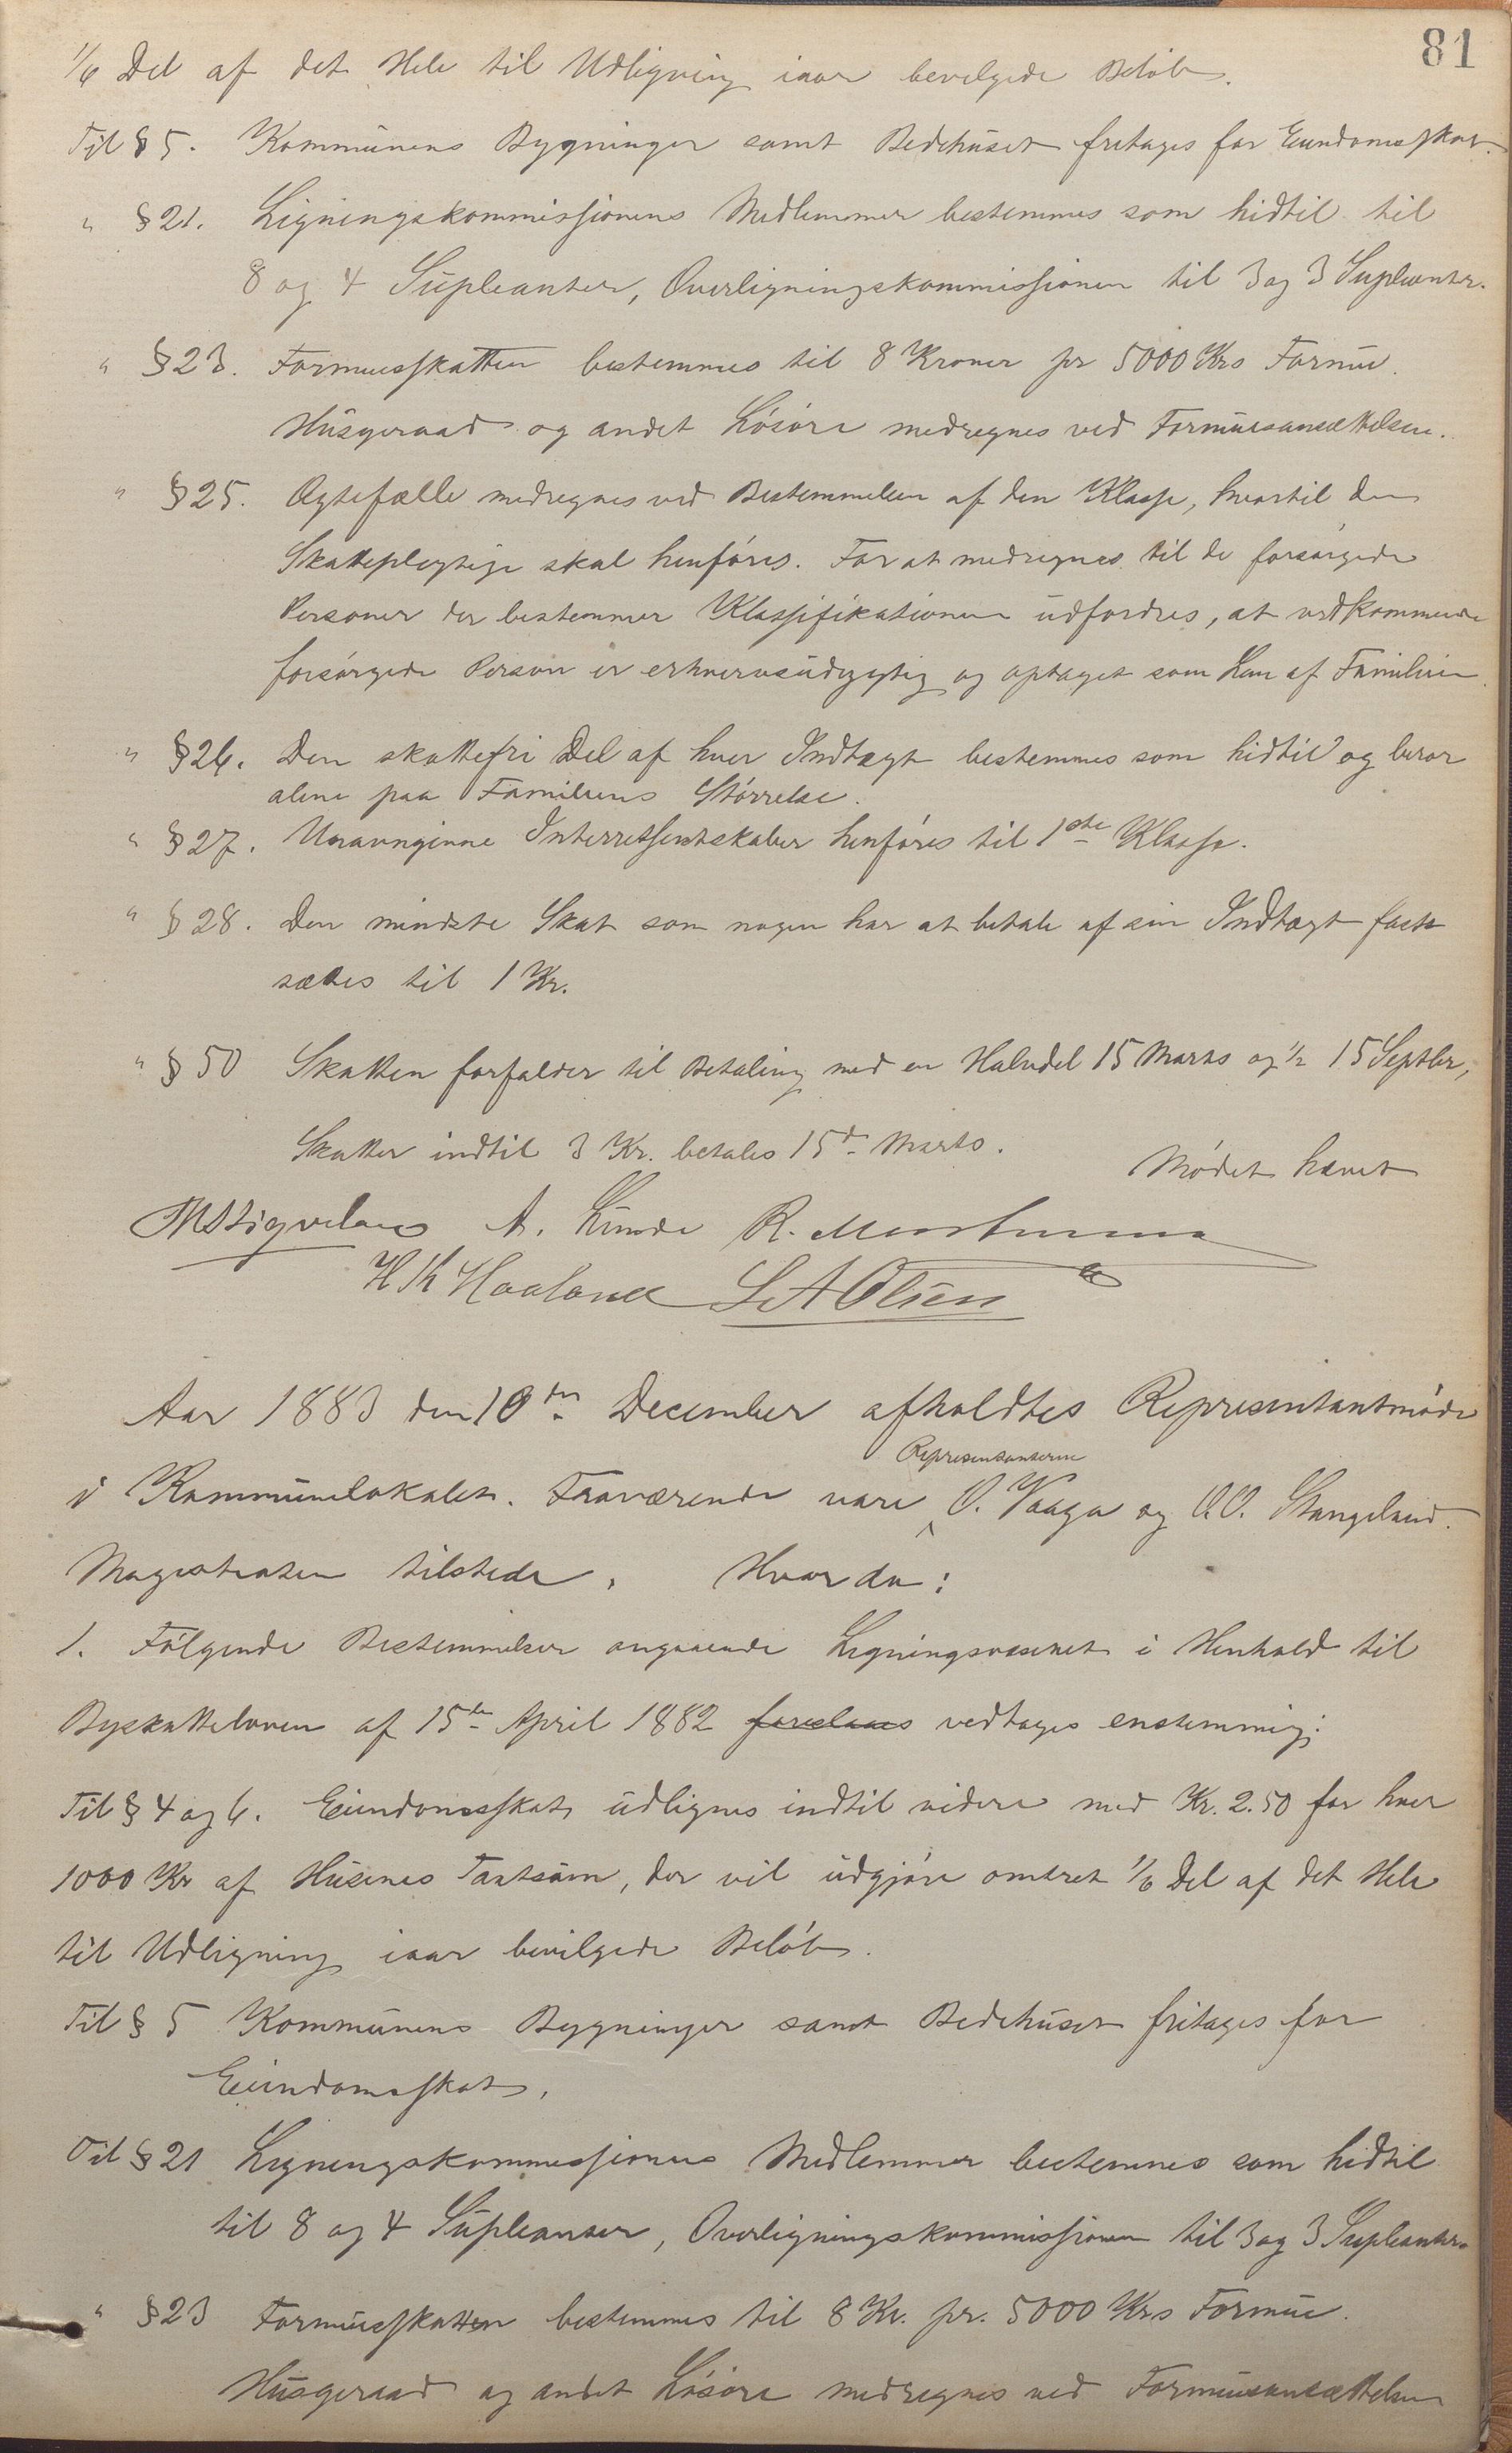 81
1/6 Del af det Hele til Udligning iaar bevilgede Beløb.
Til § 5. Kommunens Bygninger samt Bedehuset fritages for Eiendomsskat.
" § 21. Ligningskommissionens Medlemmer bestemmes som hidtil til
8 og 4 Supleanter, Overligningskommissionen til 3 og 3 Supleanter.
" § 23. Formuesskatten bestemmes til 8 Kroner pr 5000 Krs Formue.
Husgeraad og andet Løsøre medregnes ved Formuesansættelsen.
" § 25. Ægtefælle medregnes ved Bestemmelsen af den Klasse, hvortil den
Skattepligtige skal henføres. For at medregnes til de forsørgede
Personer der bestemmer Klassifikationen udfordres, at vedkommende
forsørgede Person er erhvervsudygtig og optaget som Lem af Familien.
" § 26. Den skattefri Del af hver Indtægt bestemmes som hidtil og beror
alene paa Familiens Størrelse.
" § 27. Unavngivne Interressentskaber henføres til 1ste Klasse.
" § 28. Den mindste Skat som nogen har at betale af sin Indtægt fast
sættes til 1 Kr.
" § 50 Skatten forfalder til Betaling med en Halvdel 15 Marts og 1/2 15 Septbr,
Skatter indtil 3 Kr. betales 15de Marts.
Mødet hævet
A. Lunde R.
H Th Haaland L A Olsen
Aar 1883 den 10de December afholdtes Representantmøde
Representanterne
i Kommunelokalet. Fraværende vare O. Vaaga og O. O. Stangeland.
Magistraten tilstede. Hvorda:
1. Følgende Bestemmelser angaaende Ligningsvæsenet i Henhold til
Byskatteloven af 15de April 1882 foreslaaes vedtages enstemmig:
Til § 4 og 6. Eiendomsskat udlignes indtil videre med Kr. 2.50 for hver
1000 Kr af Husenes Taxtsum, der vil udgjøre omtret 1/6 Del af det Hele
til Udligning iaar bevilgede Beløb.
Til § 5 Kommunens Bygninger samt Bedehuset fritages for
Eiendomsskat.
Til § 21 Ligningskommissionens Medlemmer bestemmes som hidtil
til 8 og 4 Supleanter, Overligningskommissionen til 3 og 3 Supleanter.
" § 23 Formuesskatten bestemmes til 8 Kr. pr. 5000 Krs Formue.
Husgeraad og andet Løsøre medregnes ved Formuesansættelsen